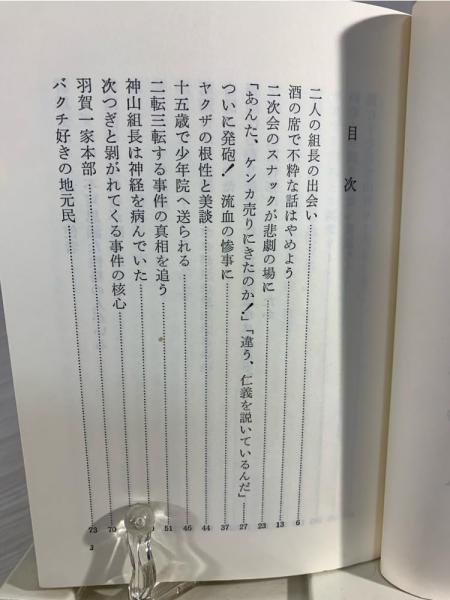 目次
二人の組長の出会い……6
酒の席で不粋な話はやめよう……13
二次会のスナックが悲劇の場に……23
「あんた、ケンカ売りにきたのか!」「違う、仁義を説いているんだ」……27
ついに発砲! 流血の惨事に……37
ヤクザの根性と美談……44
十五歳で少年院へ送られる……46
二転三転する事件の真相を追う……51
神山組長は神経を病んでいた……
次つぎと剥がれてくる事件の核心……
羽賀一家本部……
バクチ好きの地元民……73
3